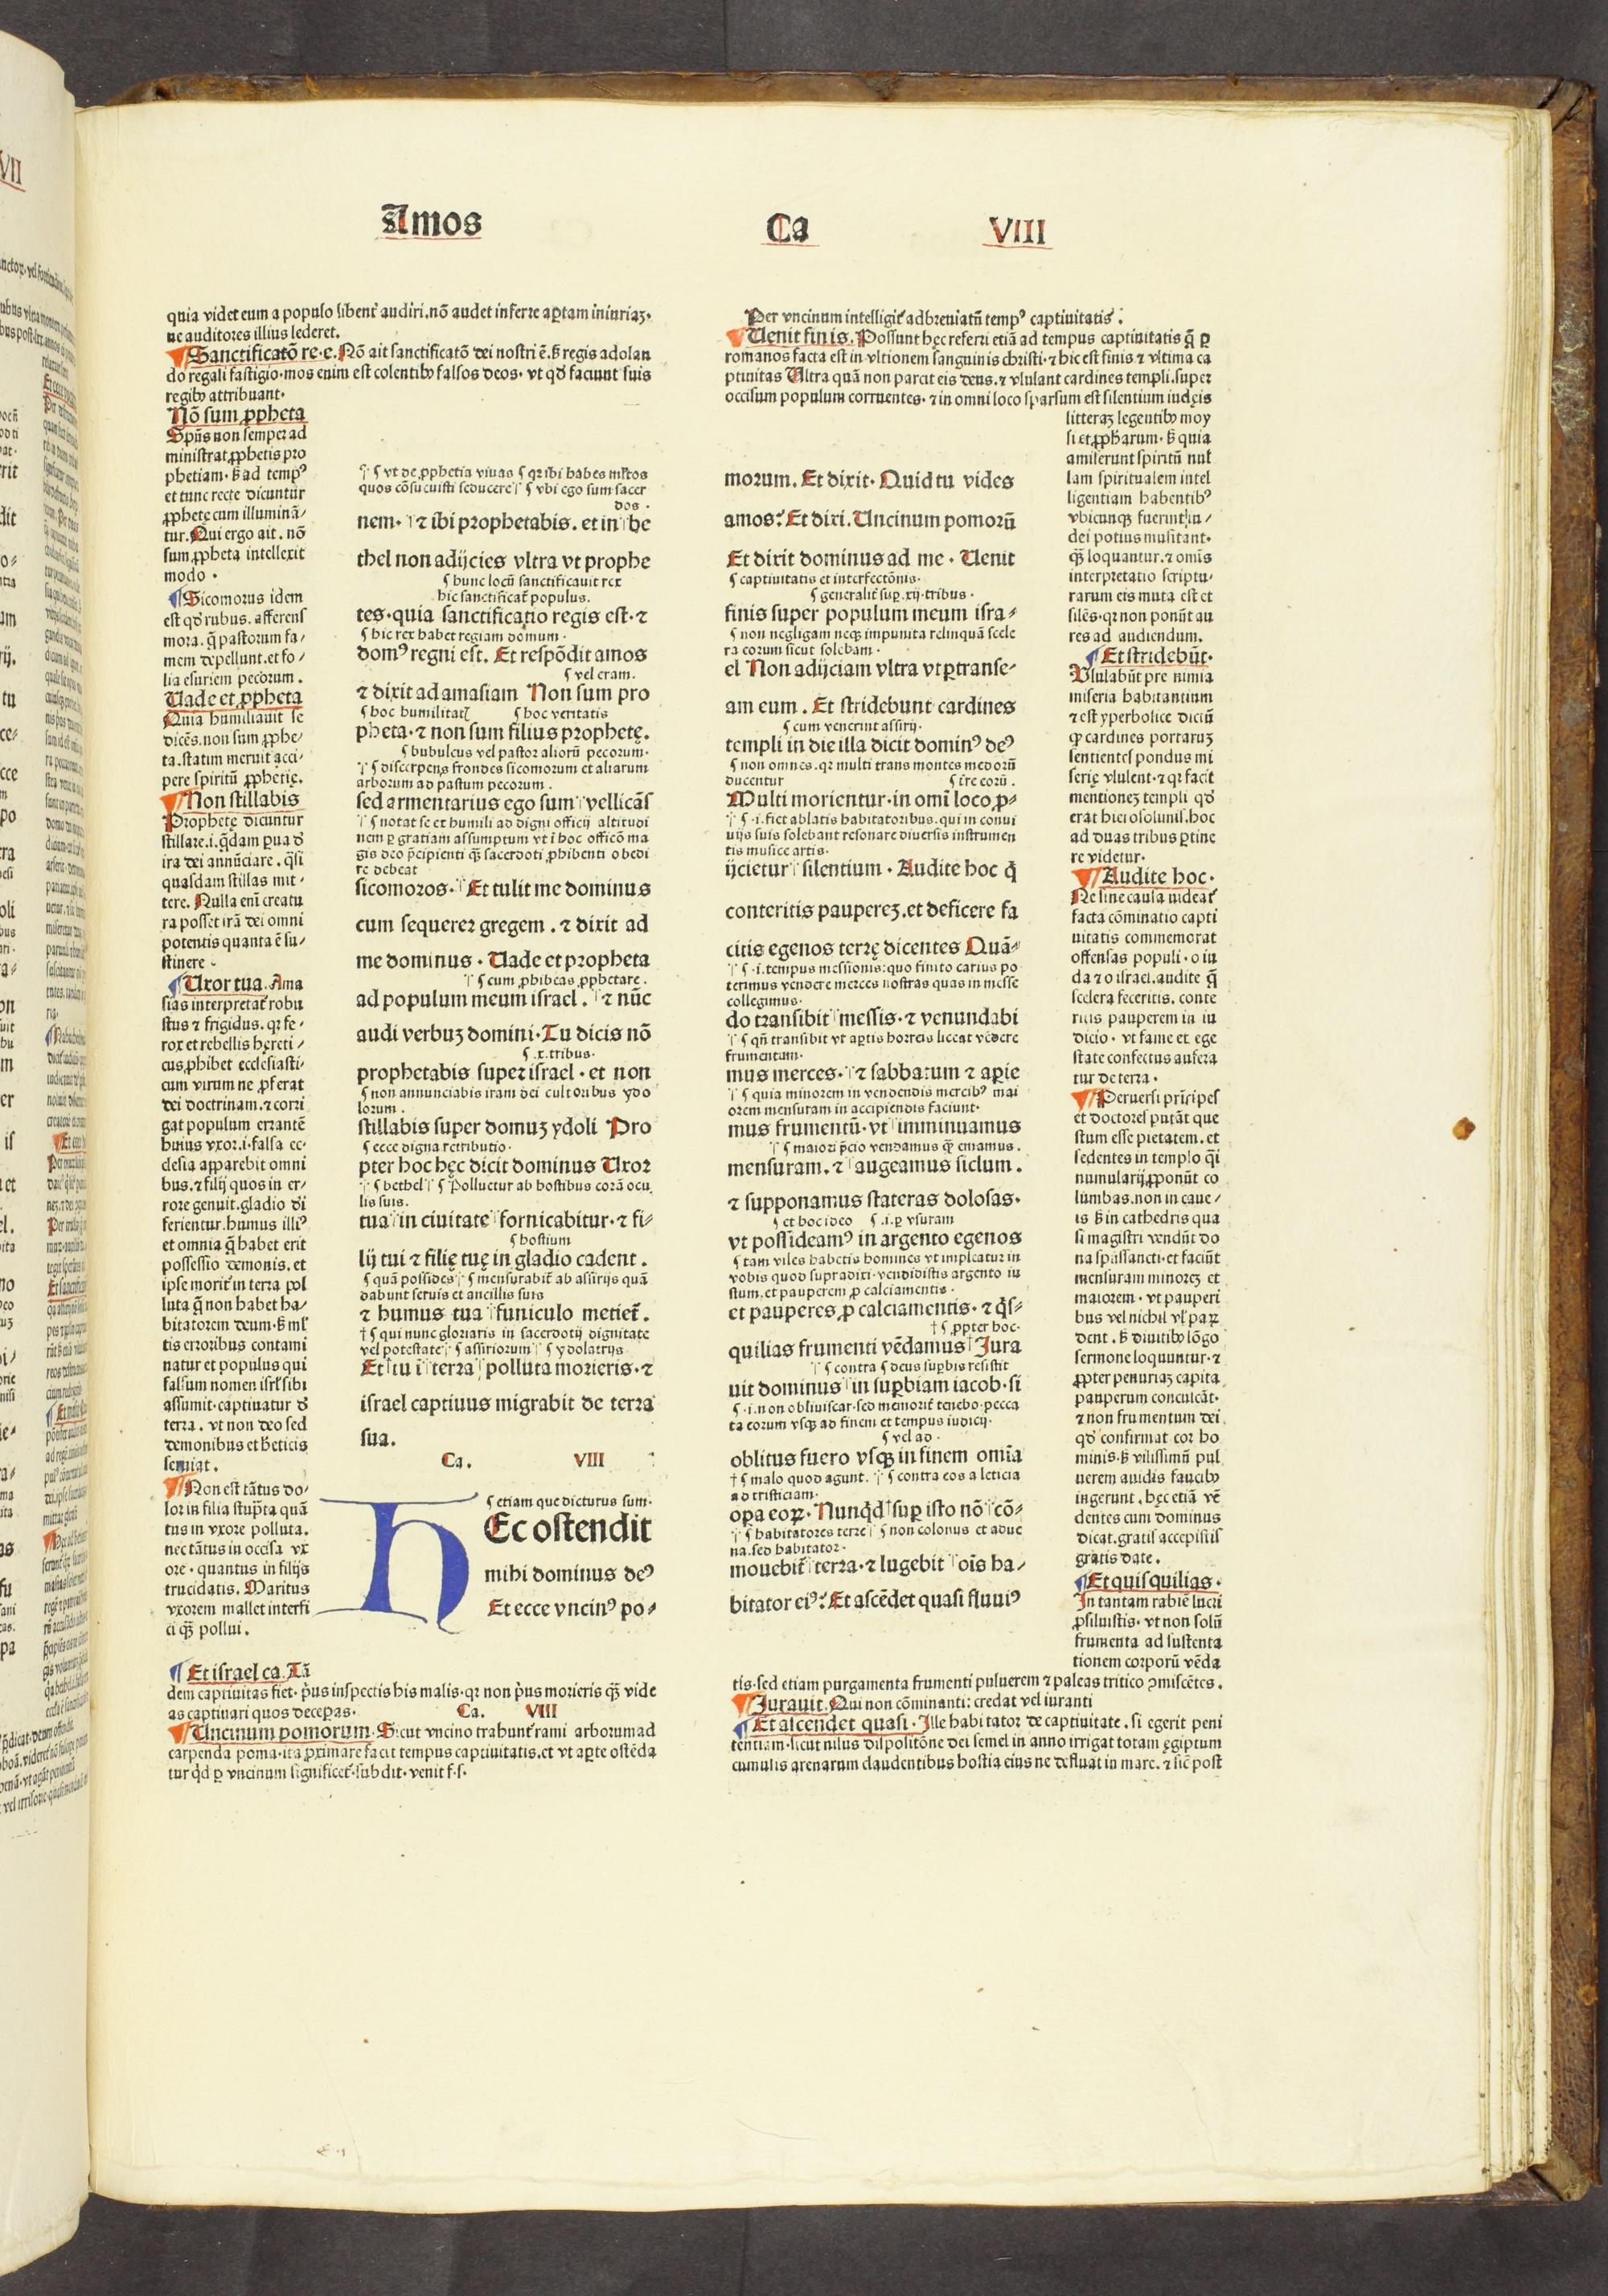 Amos
Ca
VIII
quia videt eum a populo libent̉ audiri.nõ audet inferre aꝑtam iniuriaꝫ.
ne auditores illius lederet.
Sanctificatõ re.e. Nõ ait sanctificatõ dei nostri ẽ. ß regis adolan
do regali fastigio.mos enim est colentibꝰ falsos deos. vt qđ faciunt suis
regibꝰ attribuant.
Nõ sum ꝓpheta
Spũs non semper ad
ministrat ꝓphetis pro
phetiam. ß ad tempꝰ
et tunc recte dicuntur
ꝓphetę cum illuminã/
tur. Qui ergo ait. nõ
sum ꝓpheta intellexit
modo.
Sicomorus idem
est qđ rubus. afferens
mora. q̃ pastorum fa/
mem depellunt. et fo/
lia esuriem pecorum.
Uade et ꝓpheta
Quia humiliauit se
dicẽs. non sum ꝓphe/
ta. statim meruit acci/
pere spiritũ ꝓphetię.
Non stillabis
Prophetę dicuntur
stillare.i. q̃dam ꝑua đ
ira dei annũciare. q̃si
quasdam stillas mit-
tere. Nulla enĩ creatu
ra posset irã dei omni
potentis quanta ẽ su/
stinere.
Uxor tua. Ama
sias interpretat̃ robu
stus ⁊ frigidus. qr fe-
rox et rebellis hęreti/
cus ꝓhibet ecclesiasti-
cum virum ne ꝓferat
dei doctrinam. ⁊ corri
gat populum errantẽ
huius vxor.i.falsa ec-
clesia apparebit omni
bus. ⁊ filij quos in er-
rore genuit. gladio di
ferientur. humus illiꝰ
et omnia q̃ habet erit
possessio demonis. et
ipse morit̃ in terra pol
luta q̃ non habet ha/
bitatorem deum. ß ml̃
tis erroribus contami
natur et populus qui
falsum nomen isrl̃ sibi
assumit. captiuatur đ
terra. vt non deo sed
demonibus et hẽticis
seruiat.
Non est tãtus do/
lor in filia stup̃ta quã
tus in vxore polluta.
nec tãtus in occisa vx
ore. quantus in filijs
trucidatis. Maritus
vxorem mallet interfi
ci q̃ꝫ pollui.
Et israel ca. Tã
dem captiuitas fiet. p̃us inspectis his malis. qr non p̃us morieris q̃ꝫ vide
as captiuari quos deceꝑas.
Ca. VIII
Uncinum pomorum. Sicut vncino trahunt̃ rami arborum ad
carpenda poma. ita ꝓximare facit tempus captiuitatis. et vt aꝑte ostẽda
tur qđ ꝑ vncinum significet̃. subdit. venit f.s.
¶ vt de ꝓphetia viuas ¶ qr ibi habes ml̃tos
quos cõsueuisti seducere ¶ vbi ego sum sacer
dos.
nem. ⁊ ibi prophetabis. et in be
thel non adijcies vltra vt prophe
¶ hunc locũ sanctificauit rex
hic sanctificat̃ populus.
tes. quia sanctificatio regis est. ⁊
¶ hic rex habet regiam domum.
domꝰ regni est. Et respõdit amos
¶ vel eram.
⁊ dixit ad amasiam Non sum pro
¶ hoc humilitatꝭ ¶ hoc veritatis
pheta. ⁊ non sum filius prophetę.
¶ bubulcus vel pastor aliorũ pecorum.
¶ discerpens frondes sicomorum et aliarum
arborum ad pastum pecorum.
sed armentarius ego sum vellicãs
¶ notat se ex humili ad digni officij altitudi
nem ꝑ gratiam assumptum vt ĩ hoc officõ ma
gis deo p̃cipienti q̃ꝫ sacerdoti ꝓhibenti obedi
re debeat
sicomoros. Et tulit me dominus
cum sequerer gregem. ⁊ dixit ad
me dominus. Uade et propheta
¶ cum ꝓhibeas ꝓphetare.
ad populum meum israel. ⁊ nũc
audi verbuꝫ domini. Tu dicis nõ
¶ .x. tribus.
prophetabis super israel. et non
¶ non annunciabis iram dei cultoribus ydo
lorum.
stillabis super domuꝫ ydoli Pro
¶ ecce digna retributio.
pter hoc hęc dicit dominus Uxor
¶ bethel ¶ polluetur ab hostibus corã ocu
lis suis.
tua in ciuitate fornicabitur. ⁊ fi-
¶ hostium
lij tui ⁊ filię tuę in gladio cadent.
¶ quã possides ¶ mensurabit̃ ab assirijs quã
dabunt seruis et ancillis suis
⁊ humus tua funiculo metiet̃.
¶ qui nunc gloriaris in sacerdotij dignitate
vel potestate ¶ assiriorum ¶ ydolatrys
Et tu ĩ terra polluta morieris. ⁊
israel captiuus migrabit de terra
sua.
Ca. VIII
¶ etiam que dicturus sum.
HEc ostendit
mihi dominus deꝰ
Et ecce vncinꝰ po-
Per vncinum intelligit̃ adbreuiatũ tempꝰ captiuitatis.
Uenit finis. Possunt hęc referri etiã ad tempus captiuitatis q̃ ꝑ
romanos facta est in vltionem sanguinis christi. ⁊ hic est finis ⁊ vltima ca
ptiuitas Ultra quã non parcit eis deus. ⁊ vlulant cardines templi. super
occisum populum corruentes. ⁊ in omni loco sparsum est silentium iudęis
morum. Et dixit. Quid tu vides
amos? Et dixi. Uncinum pomorũ
Et dixit dominus ad me. Uenit
¶ captiuitatis et interfectõnis.
¶ generalit̃ suꝑ .xij. tribus.
finis super populum meum isra-
¶ non negligam neqꝫ impunita relinquã scele
ra eorum sicut solebam.
el Non adijciam vltra vt ꝑtranse-
am eum. Et stridebunt cardines
¶ cum venerint assirij.
templi in die illa dicit dominꝰ deꝰ
¶ non omnes. qr multi trans montes medorũ
ducentur ¶ ire eorũ.
Multi morientur. in omĩ loco ꝓ-
¶ .i. fiet ablatis habitatoribus. qui in conui
uijs suis solebant resonare diuersis instrumen
tis musice artis.
ijcietur silentium. Audite hoc q̃
conteritis paupereꝫ. et deficere fa
citis egenos terrę dicentes Quã-
¶ .i. tempus messionis: quo finito carius po
terimus vendere merces nostras quas in messe
collegimus.
do transibit messis. ⁊ venundabi
¶ qñ transibit vt aꝑtis horreis liceat vẽdere
frumentum.
mus merces. ⁊ sabbatum ⁊ aꝑie
¶ quia minorem in vendendis mercibꝰ mai
orem mensuram in accipiendis faciunt.
mus frumentũ. vt imminuamus
¶ maiori p̃cio vendamus q̃ꝫ emamus.
mensuram. ⁊ augeamus siclum.
⁊ supponamus stateras dolosas.
¶ et hoc ideo ¶ .i. ꝑ vsuram
vt possideamꝰ in argento egenos
¶ tam viles habetis homines vt impleatur in
vobis quod supradixi. vendidistis argento iu
stum. et pauperem ꝓ calciamentis.
et pauperes ꝓ calciamentis. ⁊ q̃s-
¶ ꝓpter hoc.
quilias frumenti vẽdamus Jura
¶ contra ¶ deus suꝑbis resistit
uit dominus in suꝑbiam iacob. si
¶ .i. non obliuiscar. sed memorit̃ tenebo. pecca
ta eorum vsqꝫ ad finem et tempus iudicij.
¶ vel ad.
oblitus fuero vsqꝫ in finem omĩa
¶ malo quod agunt. ¶ contra eos a leticia
ad tristiciam.
oꝑa eoꝝ. Nunqđ suꝑ isto nõ cõ-
¶ habitatores terre ¶ non colonus et adue
na. sed habitator.
mouebit̃ terra. ⁊ lugebit oĩs ha/
bitator eiꝰ? Et ascẽdet quasi fluuiꝰ
litteraꝫ legentibꝰ moy
si et ꝓph̃arum. ß quia
amiserunt spiritũ nul
lam spiritualem intel
ligentiam habentibꝰ
vbicunqꝫ fuerint in/
dei potius musitant.
q̃ꝫ loquantur. ⁊ omĩs
interpretatio scriptu-
rarum eis muta est et
silẽs. qr non ponũt au
res ad audiendum.
Et stridebũt.
Ululabũt pre nimia
miseria habitantium
⁊ est yperbolice dictũ
ꝙ cardines portaruꝫ
sentientes pondus mi
serię vlulent. ⁊ qr facit
mentioneꝫ templi qđ
erat hierosolimis. hoc
ad duas tribus ꝑtine
re videtur.
Audite hoc.
Ne sine causa uideat̃
facta cõminatio capti
uitatis commemorat
offensas populi. o iu
da ⁊ o israel. audite q̃
scelera feceritis. conte
ritis pauperem in iu
dicio. vt fame et ege
state confectus aufera
tur de terra.
Peruersi prĩcipes
et doctores putãt que
stum esse pietatem. et
sedentes in templo q̃i
numularij ꝓponũt co
lumbas. non in caue/
is ß in cathedris qua
si magistri vendũt do
na spũssancti. et faciũt
mensuram minoreꝫ et
maiorem. vt pauperi
bus vel nichil vl̃ paꝝ
dent. ß diuitibꝰ lõgo
sermone loquuntur. ⁊
ꝓpter penuriaꝫ capita
pauperum conculcãt.
⁊ non frumentum dei
qđ confirmat cor ho
minis. ß vilissimũ pul
uerem auidis faucibꝰ
ingerunt. hęc etiã vẽ
dentes cum dominus
dicat. gratis accepistis
gratis date.
Et quisquilias.
In tantam rabiẽ lucri
ꝓsiluistis. vt non solũ
frumenta ad sustenta
tionem corporũ vẽda
tis. sed etiam purgamenta frumenti puluerem ⁊ paleas tritico ꝯmiscẽtes.
Jurauit. Qui non cõminanti: credat vel iuranti
Et ascendet quasi. Ille habitator de captiuitate. si egerit peni
tentiam. sicut nilus dispositõne dei semel in anno irrigat totam ęgiptum
cumulis arenarum claudentibus hostia eius ne defluat in mare. ⁊ sic̃ post